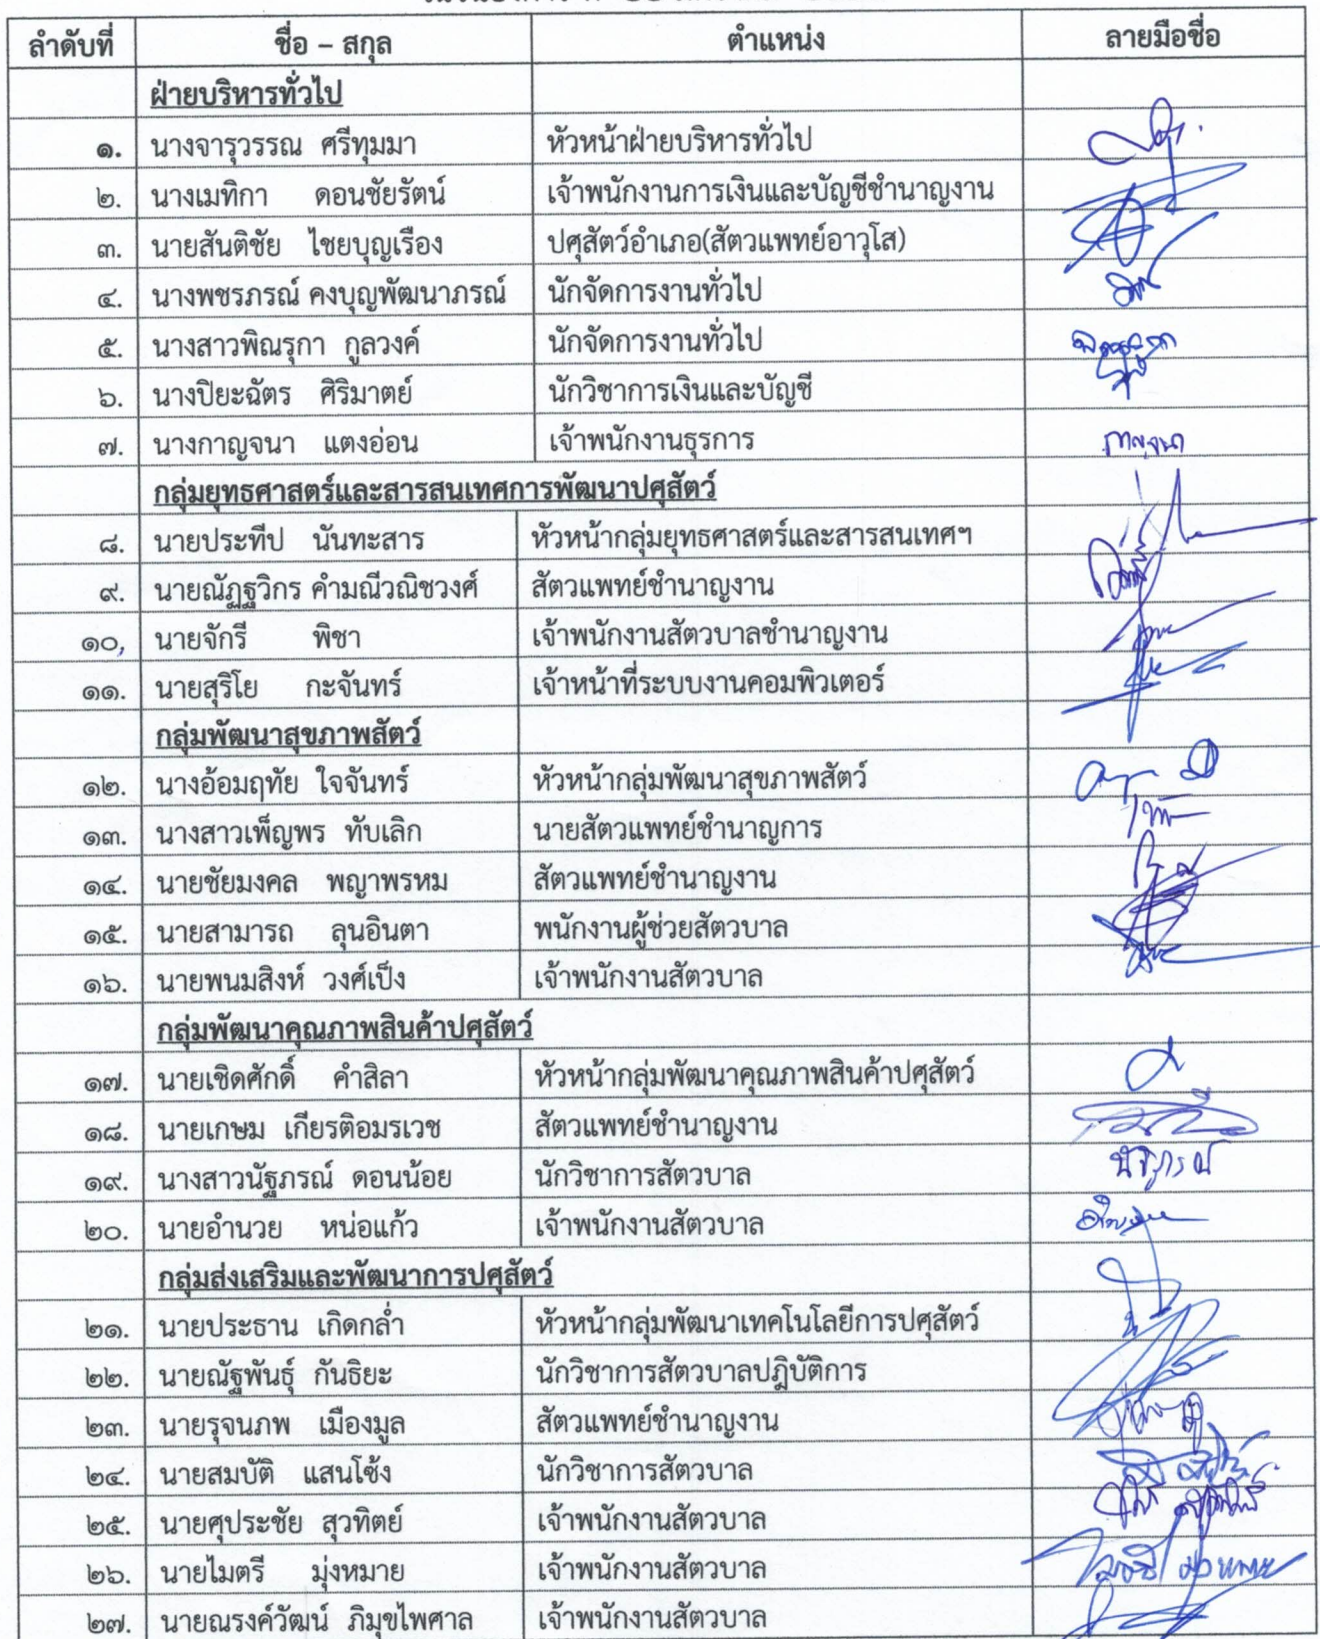 ลำดับที่ ชื่อ – สกุล ตำแหน่ง ลายมือชื่อ
ฝ่ายบริหารทั่วไป
๑. นางจารุวรรณ ศรีทุมมา หัวหน้าฝ่ายบริหารทั่วไป
๒. นางเมทิกา ดอนชัยรัตน์ เจ้าพนักงานการเงินและบัญชีชำนาญงาน
๓. นายสันติชัย ไชยบุญเรือง ปศุสัตว์อำเภอ(สัตวแพทย์อาวุโส)
๔. นางพชรภรณ์ คงบุญพัฒนาภรณ์ นักจัดการงานทั่วไป
๕. นางสาวพิณรุกา กูลวงค์ นักจัดการงานทั่วไป
๖. นางปิยะฉัตร ศิริมาตย์ นักวิชาการเงินและบัญชี
๗. นางกาญจนา แตงอ่อน เจ้าพนักงานธุรการ กาญจนา
กลุ่มยุทธศาสตร์และสารสนเทศการพัฒนาปศุสัตว์
๘. นายประทีป นันทะสาร หัวหน้ากลุ่มยุทธศาสตร์และสารสนเทศฯ
๙. นายณัฏฐวิกร คำมณีวณิชวงศ์ สัตวแพทย์ชำนาญงาน
๑๐, นายจักรี พิชา เจ้าพนักงานสัตวบาลชำนาญงาน
๑๑. นายสุริโย กะจันทร์ เจ้าหน้าที่ระบบงานคอมพิวเตอร์
กลุ่มพัฒนาสุขภาพสัตว์
๑๒. นางอ้อมฤทัย ใจจันทร์ หัวหน้ากลุ่มพัฒนาสุขภาพสัตว์
๑๓. นางสาวเพ็ญพร ทับเลิก นายสัตวแพทย์ชำนาญการ
๑๔. นายชัยมงคล พญาพรหม สัตวแพทย์ชำนาญงาน
๑๕. นายสามารถ ลุนอินตา พนักงานผู้ช่วยสัตวบาล
๑๖. นายพนมสิงห์ วงศ์เป็ง เจ้าพนักงานสัตวบาล
กลุ่มพัฒนาคุณภาพสินค้าปศุสัตว์
๑๗. นายเชิดศักดิ์ คำสิลา หัวหน้ากลุ่มพัฒนาคุณภาพสินค้าปศุสัตว์
๑๘. นายเกษม เกียรติอมรเวช สัตวแพทย์ชำนาญงาน
๑๙. นางสาวนัฐภรณ์ ดอนน้อย นักวิชาการสัตวบาล นัฐภรณ์
๒๐. นายอำนวย หน่อแก้ว เจ้าพนักงานสัตวบาล
กลุ่มส่งเสริมและพัฒนาการปศุสัตว์
๒๑. นายประธาน เกิดกล่ำ หัวหน้ากลุ่มพัฒนาเทคโนโลยีการปศุสัตว์
๒๒. นายณัฐพันธุ์ กันธิยะ นักวิชาการสัตวบาลปฎิบัติการ
๒๓. นายรุจนภพ เมืองมูล สัตวแพทย์ชำนาญงาน
๒๔. นายสมบัติ แสนโซ้ง นักวิชาการสัตวบาล
๒๕. นายศุประชัย สุวทิตย์ เจ้าพนักงานสัตวบาล
๒๖. นายไมตรี มุ่งหมาย เจ้าพนักงานสัตวบาล ไมตรี มุ่งหมาย
๒๗. นายณรงค์วัฒน์ ภิมุขไพศาล เจ้าพนักงานสัตวบาล